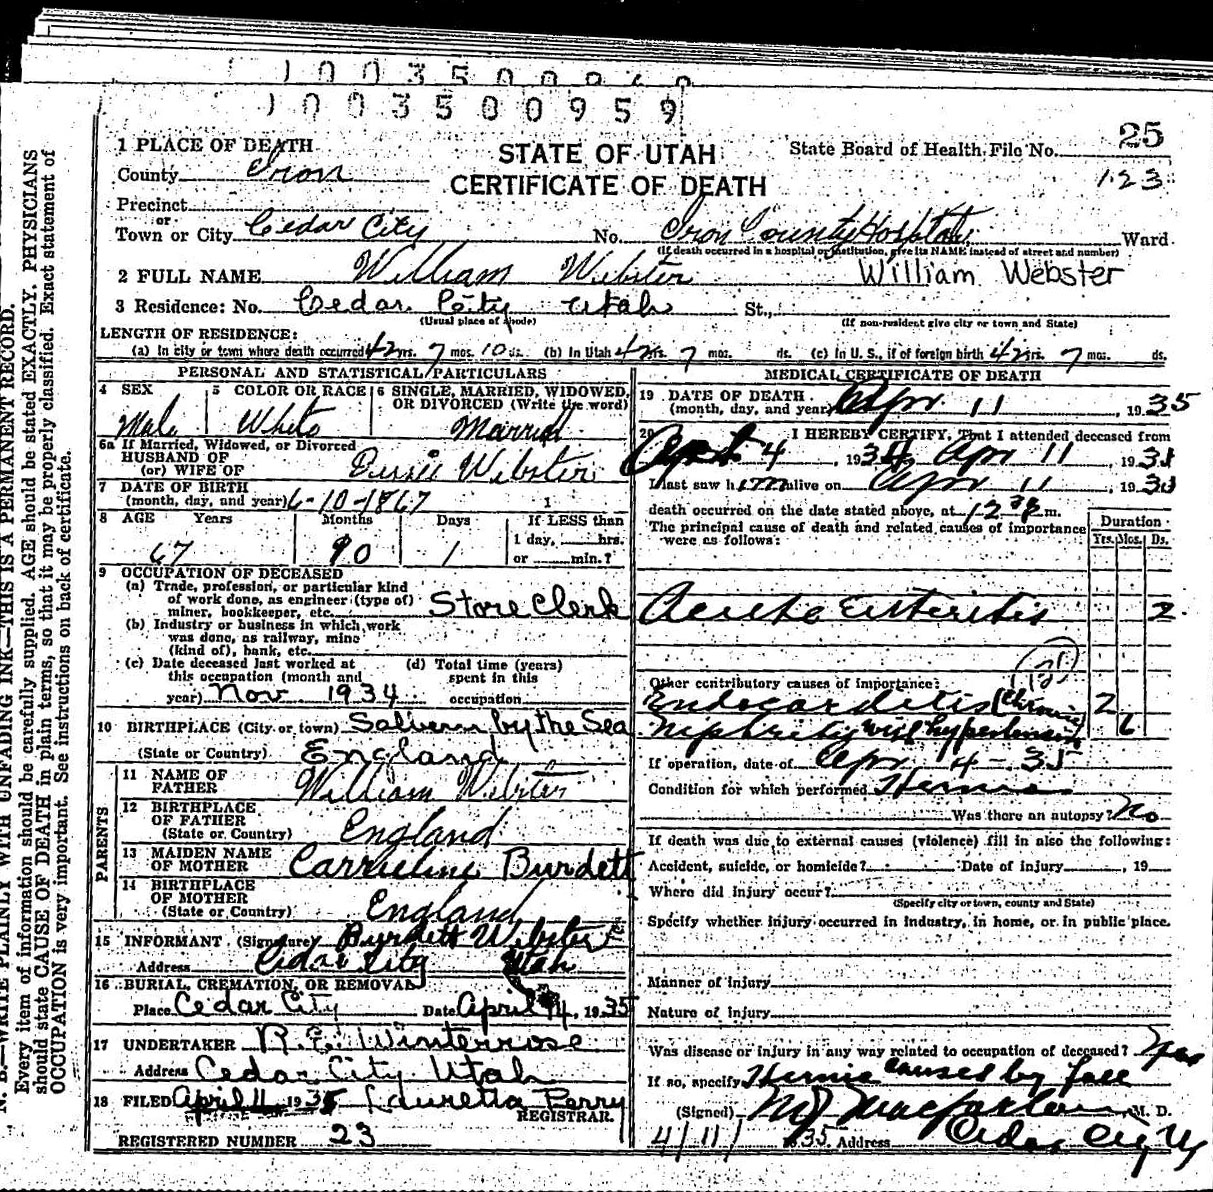 1003500959
25
1 PLACE OF DEATH
STATE OF UTAH
State Board of Health File No.
County Iron
CERTIFICATE OF DEATH
123
Precinct
or
Town or City Cedar City No. Iron County Hospital Ward
(If death occurred in a hospital or institution, give its NAME instead of street and number)
2 FULL NAME William Webster William Webster
3 Residence: No. Cedar City Utah St.,
(Usual place of abode) (If non-resident give city or town and State)
LENGTH OF RESIDENCE:
(a) In city or town where death occurred 42 yrs. 7 mos. 10 ds. (b) In Utah 42 yrs. 7 mos. ds. (c) In U. S., if of foreign birth 42 yrs. 7 mos. ds.
PERSONAL AND STATISTICAL PARTICULARS
4 SEX 5 COLOR OR RACE 6 SINGLE, MARRIED, WIDOWED, OR DIVORCED (Write the word)
Male White Married
6a If Married, Widowed, or Divorced
HUSBAND OF
(or) WIFE OF Webster
7 DATE OF BIRTH
(month, day, and year) 6-10-1867
8 AGE Years Months Days If LESS than
1 day, hrs.
67 10 1 or min.?
9 OCCUPATION OF DECEASED
(a) Trade, profession, or particular kind
of work done, as engineer (type of)
miner, bookkeeper, etc. Store Clerk
(b) Industry or business in which work
was done, as railway, mine
(kind of), bank, etc.
(c) Date deceased last worked at (d) Total time (years)
this occupation (month and spent in this
year) Nov. 1934 occupation
10 BIRTHPLACE (City or town) by the Sea
(State or Country) England
PARENTS
11 NAME OF
FATHER William Webster
12 BIRTHPLACE
OF FATHER
(State or Country) England
13 MAIDEN NAME
OF MOTHER Burdett
14 BIRTHPLACE
OF MOTHER
(State or Country) England
15 INFORMANT (Signature) Burdett Webster
Address Cedar City Utah
16 BURIAL, CREMATION, OR REMOVAL
Place Cedar City Date April 14, 1935
17 UNDERTAKER R.E. Winterrose
Address Cedar City Utah
18 FILED April 11 1935 Lauretta Perry
REGISTRAR.
REGISTERED NUMBER 23
MEDICAL CERTIFICATE OF DEATH
19 DATE OF DEATH
(month, day, and year) Apr 11, 1935
20 I HEREBY CERTIFY, That I attended deceased from
4, 19 Apr 11 19
I last saw him alive on Apr 11, 19
death occurred on the date stated above, at m.
The principal cause of death and related causes of importance
were as follows:
Duration
Yrs. Mos. Ds.
Acute Enteritis 2
Other contributory causes of importance:
Endocarditis (Chronic) 2
Nephritis with hypertension 6
If operation, date of Apr 4-35
Condition for which performed Hernia
Was there an autopsy? No
If death was due to external causes (violence) fill in also the following:
Accident, suicide, or homicide? Date of injury , 19
Where did injury occur?
(Specify city or town, county and State)
Specify whether injury occurred in industry, in home, or in public place.
Manner of injury
Nature of injury
Was disease or injury in any way related to occupation of deceased? Yes
If so, specify Hernia caused by fall
(Signed) Macfarlane, M. D.
4/11/ 1935 Address Cedar City U
N. B.—WRITE PLAINLY WITH UNFADING INK—THIS IS A PERMANENT RECORD.
Every item of information should be carefully supplied. AGE should be stated EXACTLY. PHYSICIANS
should state CAUSE OF DEATH in plain terms, so that it may be properly classified. Exact statement of
OCCUPATION is very important. See instructions on back of certificate.